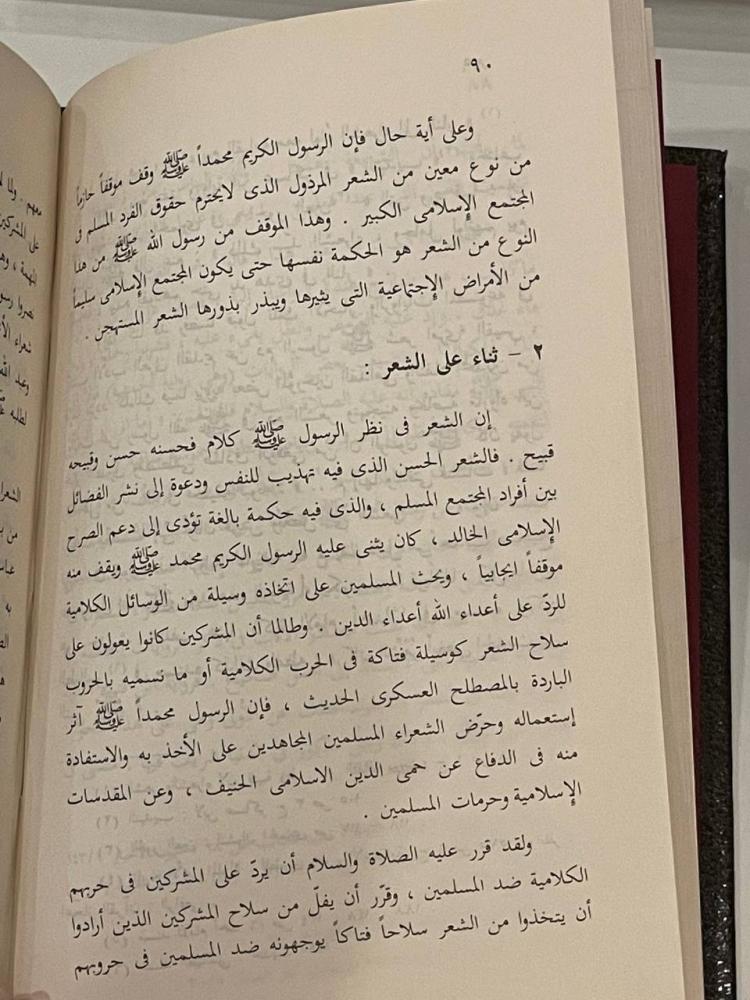 ٩٠
وعلى أية حال فإن الرسول الكريم محمداً ﷺ وقف موقفاً حازماً
من نوع معين من الشعر المرذول الذى لايحترم حقوق الفرد المسلم فى
المجتمع الإسلامى الكبير . وهذا الموقف من رسول الله ﷺ من هذا
النوع من الشعر هو الحكمة نفسها حتى يكون المجتمع الإسلامى سليماً
من الأمراض الإجتماعية التى يثيرها ويبذر بذورها الشعر المستهجن .
٢ - ثناء على الشعر :
إن الشعر فى نظر الرسول ﷺ كلام فحسنه حسن وقبيحه
قبيح . فالشعر الحسن الذى فيه تهذيب للنفس ودعوة إلى نشر الفضائل
بين أفراد المجتمع المسلم ، والذى فيه حكمة بالغة تؤدى إلى دعم الصرح
الإسلامى الخالد ، كان يثنى عليه الرسول الكريم محمد ﷺ ويقف منه
موقفاً ايجابياً ، ويحث المسلمين على اتخاذه وسيلة من الوسائل الكلامية
للردّ على أعداء الله أعداء الدين . وطالما أن المشركين كانوا يعولون على
سلاح الشعر كوسيلة فتاكة فى الحرب الكلامية أو ما نسميه بالحروب
الباردة بالمصطلح العسكرى الحديث ، فإن الرسول محمداً ﷺ آثر
إستعماله وحرّض الشعراء المسلمين المجاهدين على الأخذ به والاستفادة
منه فى الدفاع عن حمى الدين الاسلامى الحنيف ، وعن المقدسات
الإسلامية وحرمات المسلمين .
ولقد قرر عليه الصلاة والسلام أن يردّ على المشركين فى حربهم
الكلامية ضد المسلمين ، وقرّر أن يفلّ من سلاح المشركين الذين أرادوا
أن يتخذوا من الشعر سلاحاً فتاكاً يوجهونه ضد المسلمين فى حروبهم